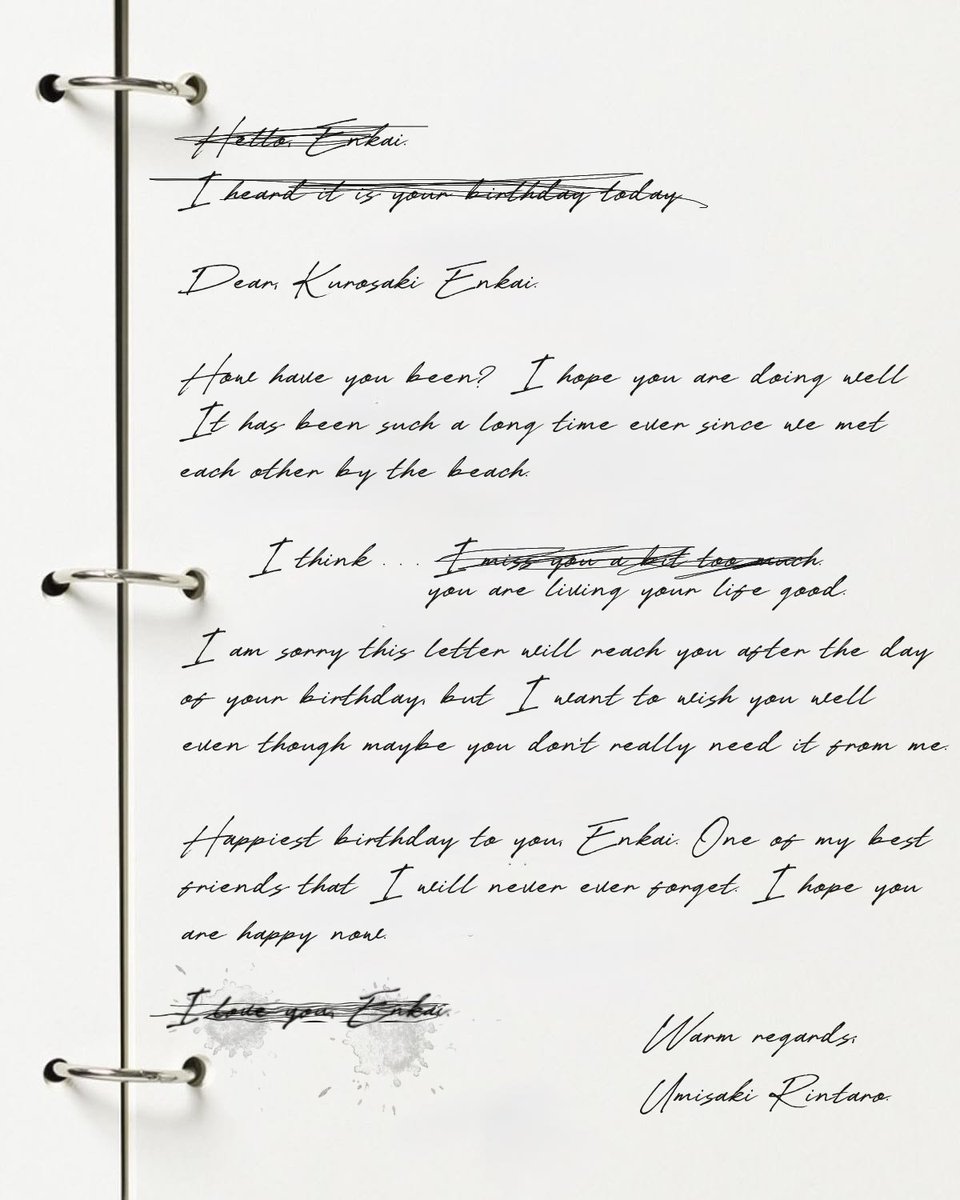 Hello, Enkai.
I heard it is your birthday today
Dear, Kurosaki Enkai.
How have you been? I hope you are doing well
It has been such a long time ever since we met
each other by the beach.
I think . . . I miss you a bit too much.
you are living your life good.
I am sorry this letter will reach you after the day
of your birthday, but I want to wish you well
even though maybe you don't really need it from me.
Happiest birthday to you, Enkai. One of my best
friends that I will never ever forget. I hope you
are happy now.
I love you, Enkai.
Warm regards,
Umisaki Rintaro.